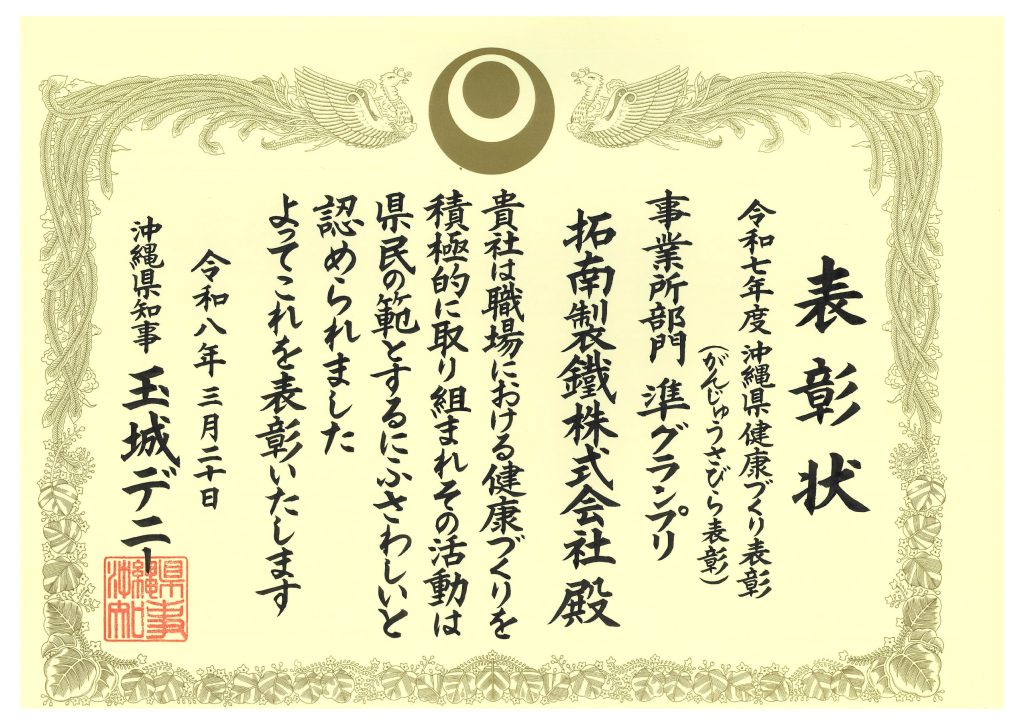 表彰状
令和七年度 沖縄県健康づくり表彰
(がんじゅうさびら表彰)
事業所部門 準グランプリ
拓南製鐵株式会社 殿
貴社は職場における健康づくりを
積極的に取り組まれその活動は
県民の範とするにふさわしいと
認められました
よってこれを表彰いたします
令和八年三月二十日
沖縄県知事 玉城デニー
沖縄県知事